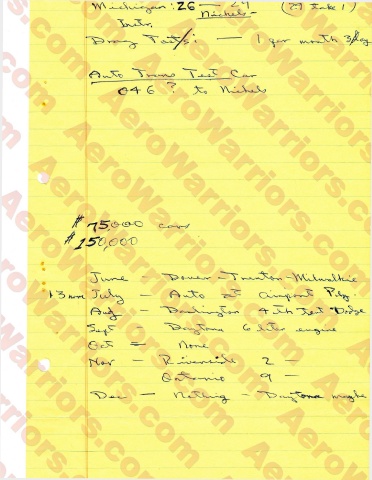 Michigan: 26 — 29 (?? take 1)
Nichels
Drag Tests — 1 per month 3/day
Auto Trans Test Car
046? to Nichels
$75,000 cars
$150,000
June — Dover - Trenton - Milwalkie
July — Auto at airport Pkg.
Aug — Darlington 4th test Dodge
Sept — Daytona 6 liter engine
Oct = None
Nov — Riverside 2 —
Ontario 9 —
Dec — Nothing — Daytona maybe
AeroWarriors.com